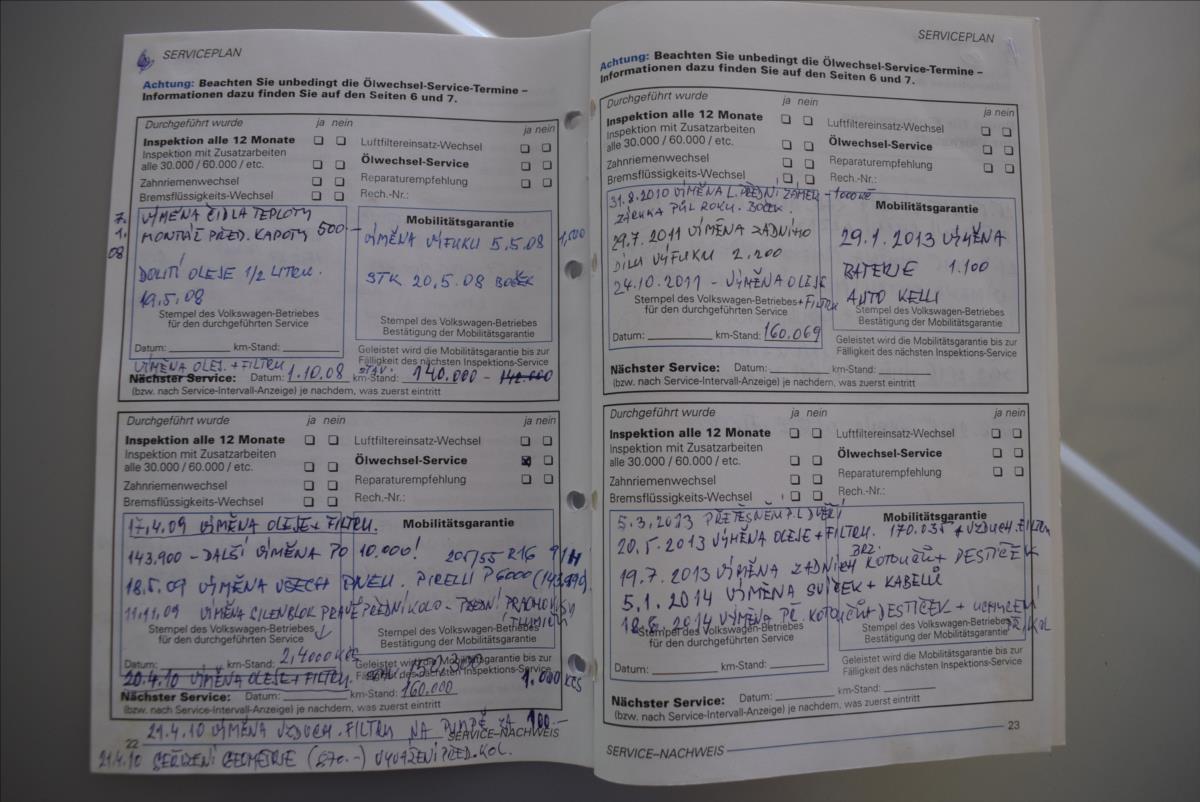 SERVICEPLAN
Achtung: Beachten Sie unbedingt die Ölwechsel-Service-Termine –
Informationen dazu finden Sie auf den Seiten 6 und 7.
Durchgeführt wurde ja nein
Inspektion alle 12 Monate
Inspektion mit Zusatzarbeiten
alle 30.000 / 60.000 / etc.
Zahnriemenwechsel
Bremsflüssigkeits-Wechsel
ja nein
Luftfiltereinsatz-Wechsel
Ölwechsel-Service
Reparaturempfehlung
Rech.-Nr.:
7.
1.
08
VÝMĚNA ČIDLA TEPLOTY
MONTÁŽ PŘED. KAPOTY 500.–
DOLITÍ OLEJE 1/2 LITRU.
19.5.08
Stempel des Volkswagen-Betriebes
für den durchgeführten Service
Datum: km-Stand:
Mobilitätsgarantie
VÝMĚNA VÝFUKU 5.5.08 1,000
STK 20.5.08 BOČEK
Stempel des Volkswagen-Betriebes
Bestätigung der Mobilitätsgarantie
Geleistet wird die Mobilitätsgarantie bis zur
Fälligkeit des nächsten Inspektions-Service
VÝMĚNA OLEJ. + FILTRU STAV.
Nächster Service: Datum: 1.10.08 km-Stand: 140.000 –
(bzw. nach Service-Intervall-Anzeige) je nachdem, was zuerst eintritt
Durchgeführt wurde ja nein
Inspektion alle 12 Monate
Inspektion mit Zusatzarbeiten
alle 30.000 / 60.000 / etc.
Zahnriemenwechsel
Bremsflüssigkeits-Wechsel
ja nein
Luftfiltereinsatz-Wechsel
Ölwechsel-Service
Reparaturempfehlung
Rech.-Nr.:
17.4.09 VÝMĚNA OLEJE + FILTRU.
Mobilitätsgarantie
143.900 – DALŠÍ VÝMĚNA PO 10.000! 205/55 R16 91H
18.5.09 VÝMĚNA VŠECH PNEU. PIRELLI P6000
11.11.09 VÝMĚNA CILENBLOK PRAVÉ PŘEDNÍ KOLO – PŘEDNÍ
Stempel des Volkswagen-Betriebes
für den durchgeführten Service
Stempel des Volkswagen-Betriebes
Bestätigung der Mobilitätsgarantie
Datum: km-Stand:
Geleistet wird die Mobilitätsgarantie bis zur
Fälligkeit des nächsten Inspektions-Service
20.4.10 VÝMĚNA OLEJE + FILTRU. 1.000 KČS
Nächster Service: Datum: km-Stand: 160.000
(bzw. nach Service-Intervall-Anzeige) je nachdem, was zuerst eintritt
21.4.10 VÝMĚNA VZDUCH. FILTRU NA PUMPĚ ZA 100.–
22 SERVICE–NACHWEIS
21.4.10 SEŘÍZENÍ GEOMETRIE (870.–) VYVÁŽENÍ PŘED. KOL.
SERVICEPLAN
Achtung: Beachten Sie unbedingt die Ölwechsel-Service-Termine –
Informationen dazu finden Sie auf den Seiten 6 und 7.
Durchgeführt wurde ja nein
Inspektion alle 12 Monate
Inspektion mit Zusatzarbeiten
alle 30.000 / 60.000 / etc.
Zahnriemenwechsel
Bremsflüssigkeits-Wechsel
ja nein
Luftfiltereinsatz-Wechsel
Ölwechsel-Service
Reparaturempfehlung
Rech.-Nr.:
31.8.2010 VÝMĚNA L. PŘEDNÍ ZÁMEK – 1000 KČ
ZÁRUKA PŮL ROKU. BOČEK.
29.7.2011 VÝMĚNA ZADNÍHO
DÍLU VÝFUKU 2.200
24.10.2011 – VÝMĚNA OLEJE
+ FILTRU
Stempel des Volkswagen-Betriebes
für den durchgeführten Service
Datum: km-Stand: 160.069
Mobilitätsgarantie
29.1.2013 VÝMĚNA
BATERIE 1.100
AUTO KELLI
Stempel des Volkswagen-Betriebes
Bestätigung der Mobilitätsgarantie
Geleistet wird die Mobilitätsgarantie bis zur
Fälligkeit des nächsten Inspektions-Service
Nächster Service: Datum: km-Stand:
(bzw. nach Service-Intervall-Anzeige) je nachdem, was zuerst eintritt
Durchgeführt wurde ja nein
Inspektion alle 12 Monate
Inspektion mit Zusatzarbeiten
alle 30.000 / 60.000 / etc.
Zahnriemenwechsel
Bremsflüssigkeits-Wechsel
ja nein
Luftfiltereinsatz-Wechsel
Ölwechsel-Service
Reparaturempfehlung
Rech.-Nr.:
5.3.2013 PŘETĚSNĚNÍ P.L DVEŘÍ
Mobilitätsgarantie
20.5.2013 VÝMĚNA OLEJE + FILTRU. 170.035 + VZDUCH. FILTRU
BRZ.
19.7.2013 VÝMĚNA ZADNÍCH KOTOUČŮ + DESTIČEK
5.1.2014 VÝMĚNA SVÍČEK + KABELŮ
18.6.2014 VÝMĚNA PŘ. KOTOUČŮ + DESTIČEK + UCHYCENÍ
Stempel des Volkswagen-Betriebes
für den durchgeführten Service
Stempel des Volkswagen-Betriebes
Bestätigung der Mobilitätsgarantie
Datum: km-Stand:
Geleistet wird die Mobilitätsgarantie bis zur
Fälligkeit des nächsten Inspektions-Service
Nächster Service: Datum: km-Stand:
(bzw. nach Service-Intervall-Anzeige) je nachdem, was zuerst eintritt
SERVICE–NACHWEIS 23